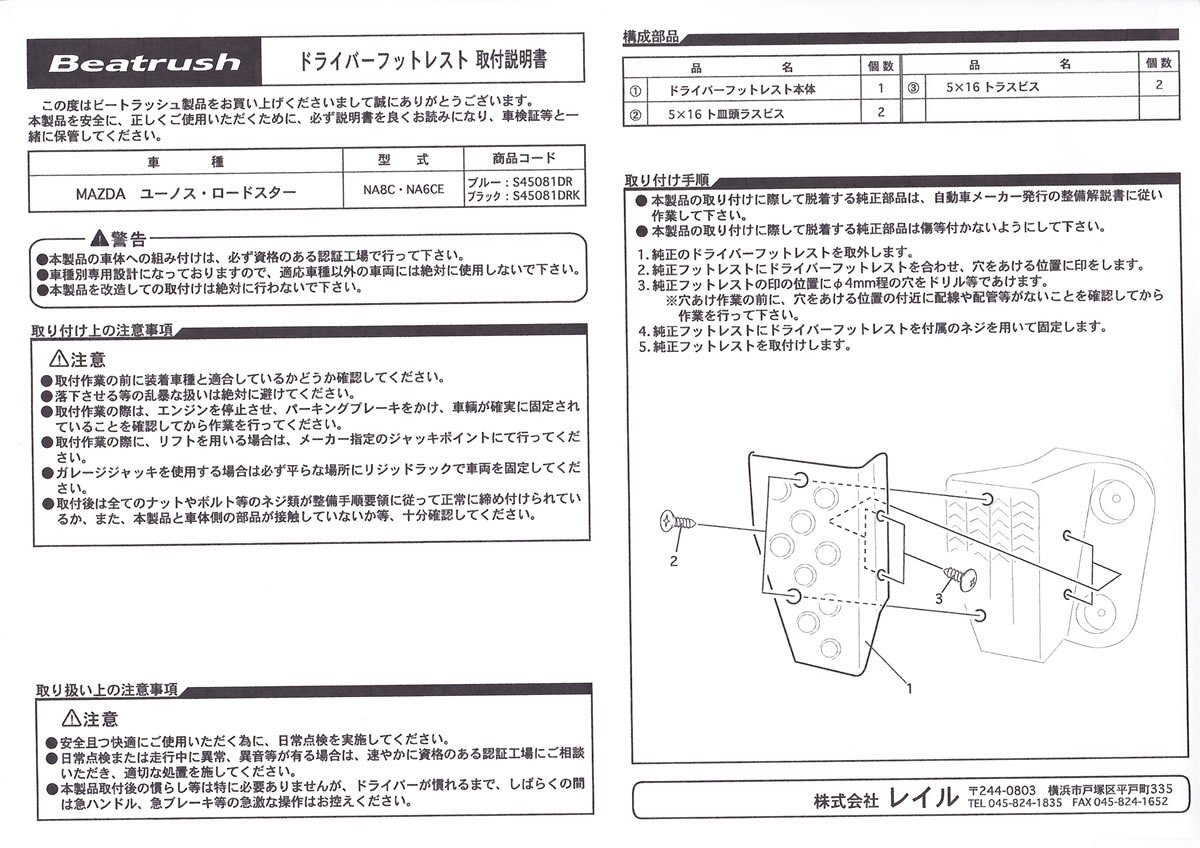 Beatrush
ドライバーフットレスト 取付説明書
この度はビートラッシュ製品をお買い上げくださいまして誠にありがとうございます。
本製品を安全に、正しくご使用いただくために、必ず説明書を良くお読みになり、車検証等と一
緒に保管してください。
車 種 型 式 商品コード
MAZDA ユーノス・ロードスター NA8C・NA6CE ブルー：S45081DR
ブラック：S45081DRK
警告
●本製品の車体への組み付けは、必ず資格のある認証工場で行って下さい。
●車種別専用設計になっておりますので、適応車種以外の車両には絶対に使用しないで下さい。
●本製品を改造しての取付けは絶対に行わないで下さい。
取り付け上の注意事項
注意
●取付作業の前に装着車種と適合しているかどうか確認してください。
●落下させる等の乱暴な扱いは絶対に避けてください。
●取付作業の際は、エンジンを停止させ、パーキングブレーキをかけ、車輌が確実に固定され
ていることを確認してから作業を行ってください。
●取付作業の際に、リフトを用いる場合は、メーカー指定のジャッキポイントにて行ってくだ
さい。
●ガレージジャッキを使用する場合は必ず平らな場所にリジッドラックで車両を固定してくだ
さい。
●取付後は全てのナットやボルト等のネジ類が整備手順要領に従って正常に締め付けられてい
るか、また、本製品と車体側の部品が接触していないか等、十分確認してください。
取り扱い上の注意事項
注意
●安全且つ快適にご使用いただく為に、日常点検を実施してください。
●日常点検または走行中に異常、異音等が有る場合は、速やかに資格のある認証工場にご相談
いただき、適切な処置を施してください。
●本製品取付後の慣らし等は特に必要ありませんが、ドライバーが慣れるまで、しばらくの間
は急ハンドル、急ブレーキ等の急激な操作はお控えください。
構成部品
品 名 個数 品 名 個数
① ドライバーフットレスト本体 1 ③ 5×16 トラスビス 2
② 5×16 ト皿頭ラスビス 2
取り付け手順
●本製品の取り付けに際して脱着する純正部品は、自動車メーカー発行の整備解説書に従い
作業して下さい。
●本製品の取り付けに際して脱着する純正部品は傷等付かないようにして下さい。
1. 純正のドライバーフットレストを取外します。
2. 純正フットレストにドライバーフットレストを合わせ、穴をあける位置に印をします。
3. 純正フットレストの印の位置にφ4mm程の穴をドリル等であけます。
※穴あけ作業の前に、穴をあける位置の付近に配線や配管等がないことを確認してから
作業を行って下さい。
4. 純正フットレストにドライバーフットレストを付属のネジを用いて固定します。
5. 純正フットレストを取付けします。
2
3
1
株式会社 レイル 〒244-0803 横浜市戸塚区平戸町335
TEL 045-824-1835 FAX 045-824-1652